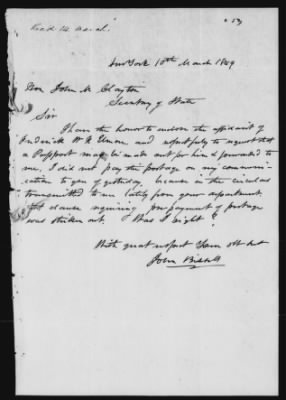 Recd 14 March
New York 10th March 1849
Hon John M. Clayton
Secretary of State
Sir
I have the honor to enclose the affidavit of
Frederick W. and respectfully to request that
a Passport may be made out for him & forwarded to
me, I did not pay the postage on my communi-
cation to you of yesterday because in the circular
transmitted to me lately from your department
the clause requiring pre payment of postage
was striken out. Was I right?
With great respect Your obt Svt
John Bissell